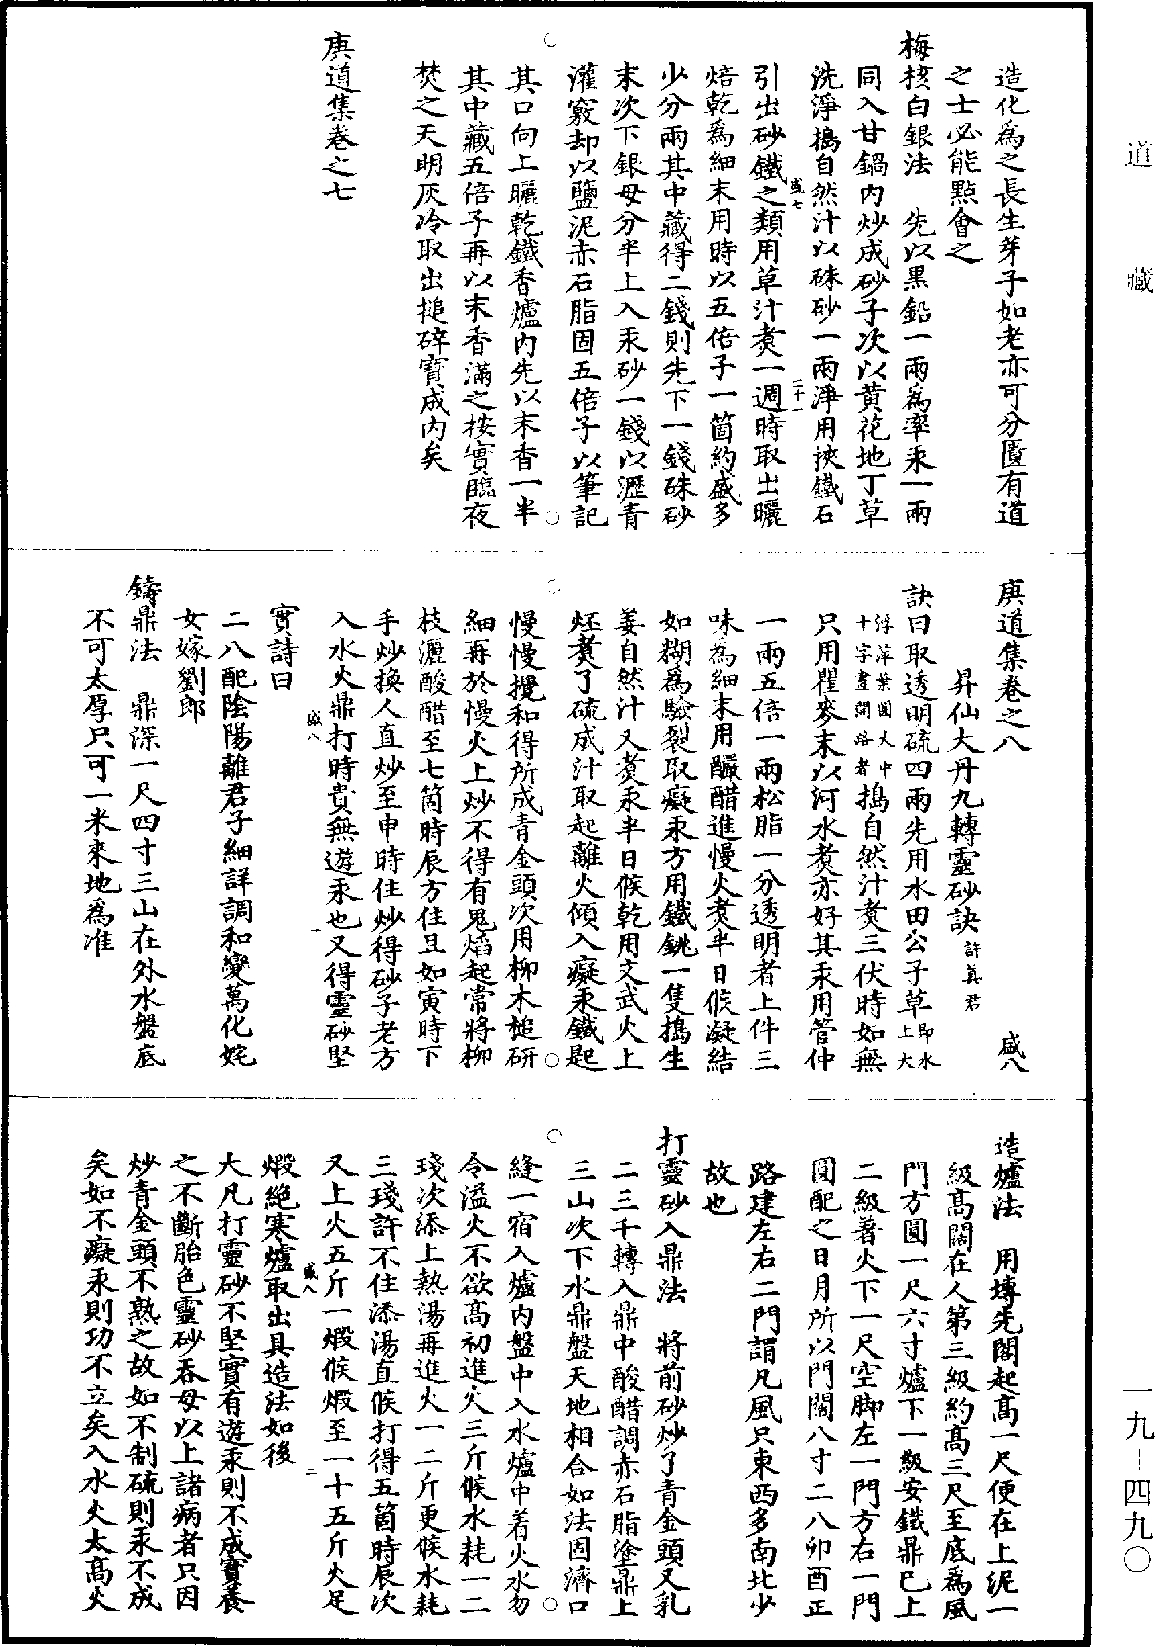 道藏
造化爲之長生芽子如老亦可分匱有道
之士必能點會之
梅核白銀法　先以黑鉛一兩爲率汞一兩
同入甘鍋內炒成砂子次以黃花地丁草
洗淨搗自然汁以硃砂一兩淨用挾鐵石
引出砂鐵之類用草汁煑一週時取出曬
盛七
二十一
焙乾爲細末用時以五倍子一箇約盛多
少分兩其中藏得二錢則先下一錢硃砂
末次下銀母分半上入汞砂一錢以瀝青
灌竅却以鹽泥赤石脂固五倍子以筆記
其口向上曬乾鐵香爐內先以末香一半
其中藏五倍子再以末香滿之按實臨夜
焚之天明灰冷取出搥碎寶成內矣
庚道集卷之七
庚道集卷之八
盛八
昇仙大丹九轉靈砂訣許真君
訣曰取透明硫四兩先用水田公子草即水上大
浮萍葉圓大中十字畫開路者搗自然汁煑三伏時如無
只用瞿麥末以河水煑亦好其汞用管仲
一兩五倍一兩松脂一分透明者上件三
味爲細末用釅醋進慢火煑半日候凝結
如糊爲驗裂取癡汞方用鐵銚一隻搗生
姜自然汁又煑汞半日候乾用文武火上
烶煑了硫成汁取起離火傾入癡汞鐵匙
慢慢攪和得所成青金頭次用柳木槌研
細再於慢火上炒不得有鬼焰起常將柳
枝灑酸醋至七箇時辰方住且如寅時下
手炒換人直炒至申時住炒得砂子老方
入水火鼎打時貴無遊汞也又得靈砂堅
盛八
一
實詩曰
二八配陰陽離君子細詳調和變萬化姹
女嫁劉郎
鑄鼎法　鼎深一尺四寸三山在外水盤底
不可太厚只可一米來地爲准
造爐法　用塼先闊起高一尺便在上泥一
級高闊在人第三級約高三尺至底爲風
門方圓一尺六寸爐下一級安鐵鼎巳上
二級著火下一尺空脚左一門方右一門
圓配之日月所以門闊八寸二八卯酉正
路建左右二門謂凡風只東西多南北少
故也
打靈砂入鼎法　將前砂炒了青金頭又乳
二三千轉入鼎中酸醋調赤石脂塗鼎上
三山次下水鼎盤天地相合如法固濟口
縫一宿入爐內盤中入水爐中着火水勿
令溢火不欲高初進火三斤候水耗一二
琖次添上熱湯再進火一二斤更候水耗
三琖許不住添湯直候打得五箇時辰次
又上火五斤一煅候煅至一十五斤火足
盛八
二
煅絕寒爐取出具造法如後
大凡打靈砂不堅實有遊汞則不成寶養
之不斷胎色靈砂吞母以上諸病者只因
炒青金頭不熟之故如不制硫則汞不成
矣如不癡汞則功不立矣入水火太高火
一九–四九〇